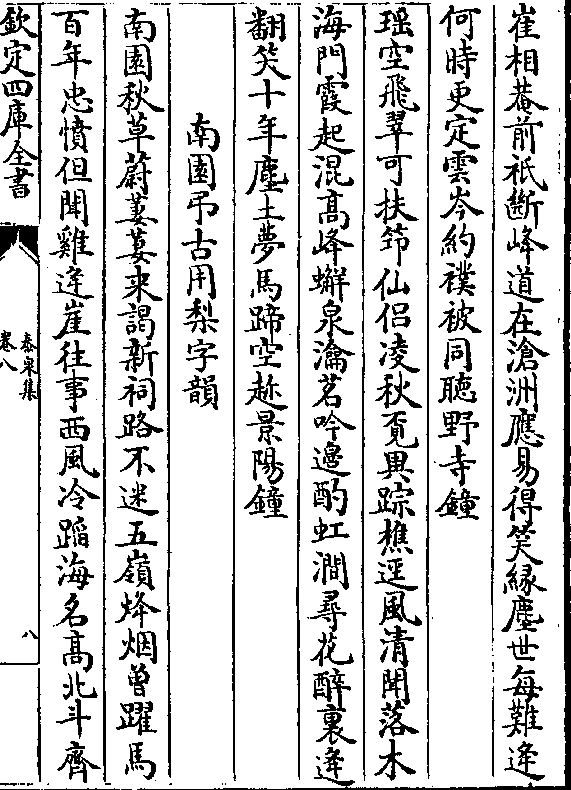 崔相菴前祇斷峰道在滄洲應易得笑縁塵世每難逢
何時更定雲岑約襆被同聴野寺鐘
瑶空飛翠可扶筇仙侣凌秋覔異踪樵逕風清聞落木
海門霞起混髙峰蠏泉瀹茗吟邊酌虹澗尋花醉裏逢
翻笑十年塵土夢馬蹄空趂景陽鐘
南園弔古用梨字韻
南園秋草蔚萋萋来謁新祠路不迷五嶺烽烟曽躍馬
百年忠憤但聞雞逆崖往事西風冷蹈海名髙北斗齊
欽定四庫全書
泰泉集
卷八
八